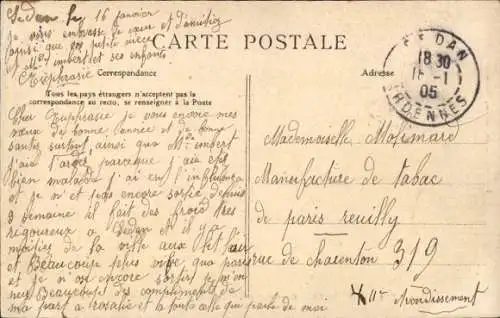 Sedan le 16 janvier
je vous embrasse de cœur et d'amitiez
ainsi que vos petite nièce
et Mme Imbert et ses enfants
Euphrasie
CARTE POSTALE
Correspondance
Adresse
Tous les pays étrangers n'acceptent pas la
correspondance au recto, se renseigner à la Poste
SEDAN
18 30
16-1
05
ARDENNES
Cher Euphrasie je vous envoie mes
vœux de bonne année et de bonne
santez surtout, ainsi que Mme Imbert
j'ai tardez parceque j'ai etez
bien malade j'ai eu l'influenza
et je n'ai pas encore sortie depuis
3 semaine il fait des froid très
regoureux a Sedan et il y a
moitiez de la ville aux lit
et Beaucoup plus vite que paris
et je n'ose encore sortir je
Beaucoups des compliments de
ma part a rosalie et a toute celle qui parle de moi
Mademoiselle
Manufacture de tabac
de paris reuilly
rue de charenton 319
XIIe Arrondissement